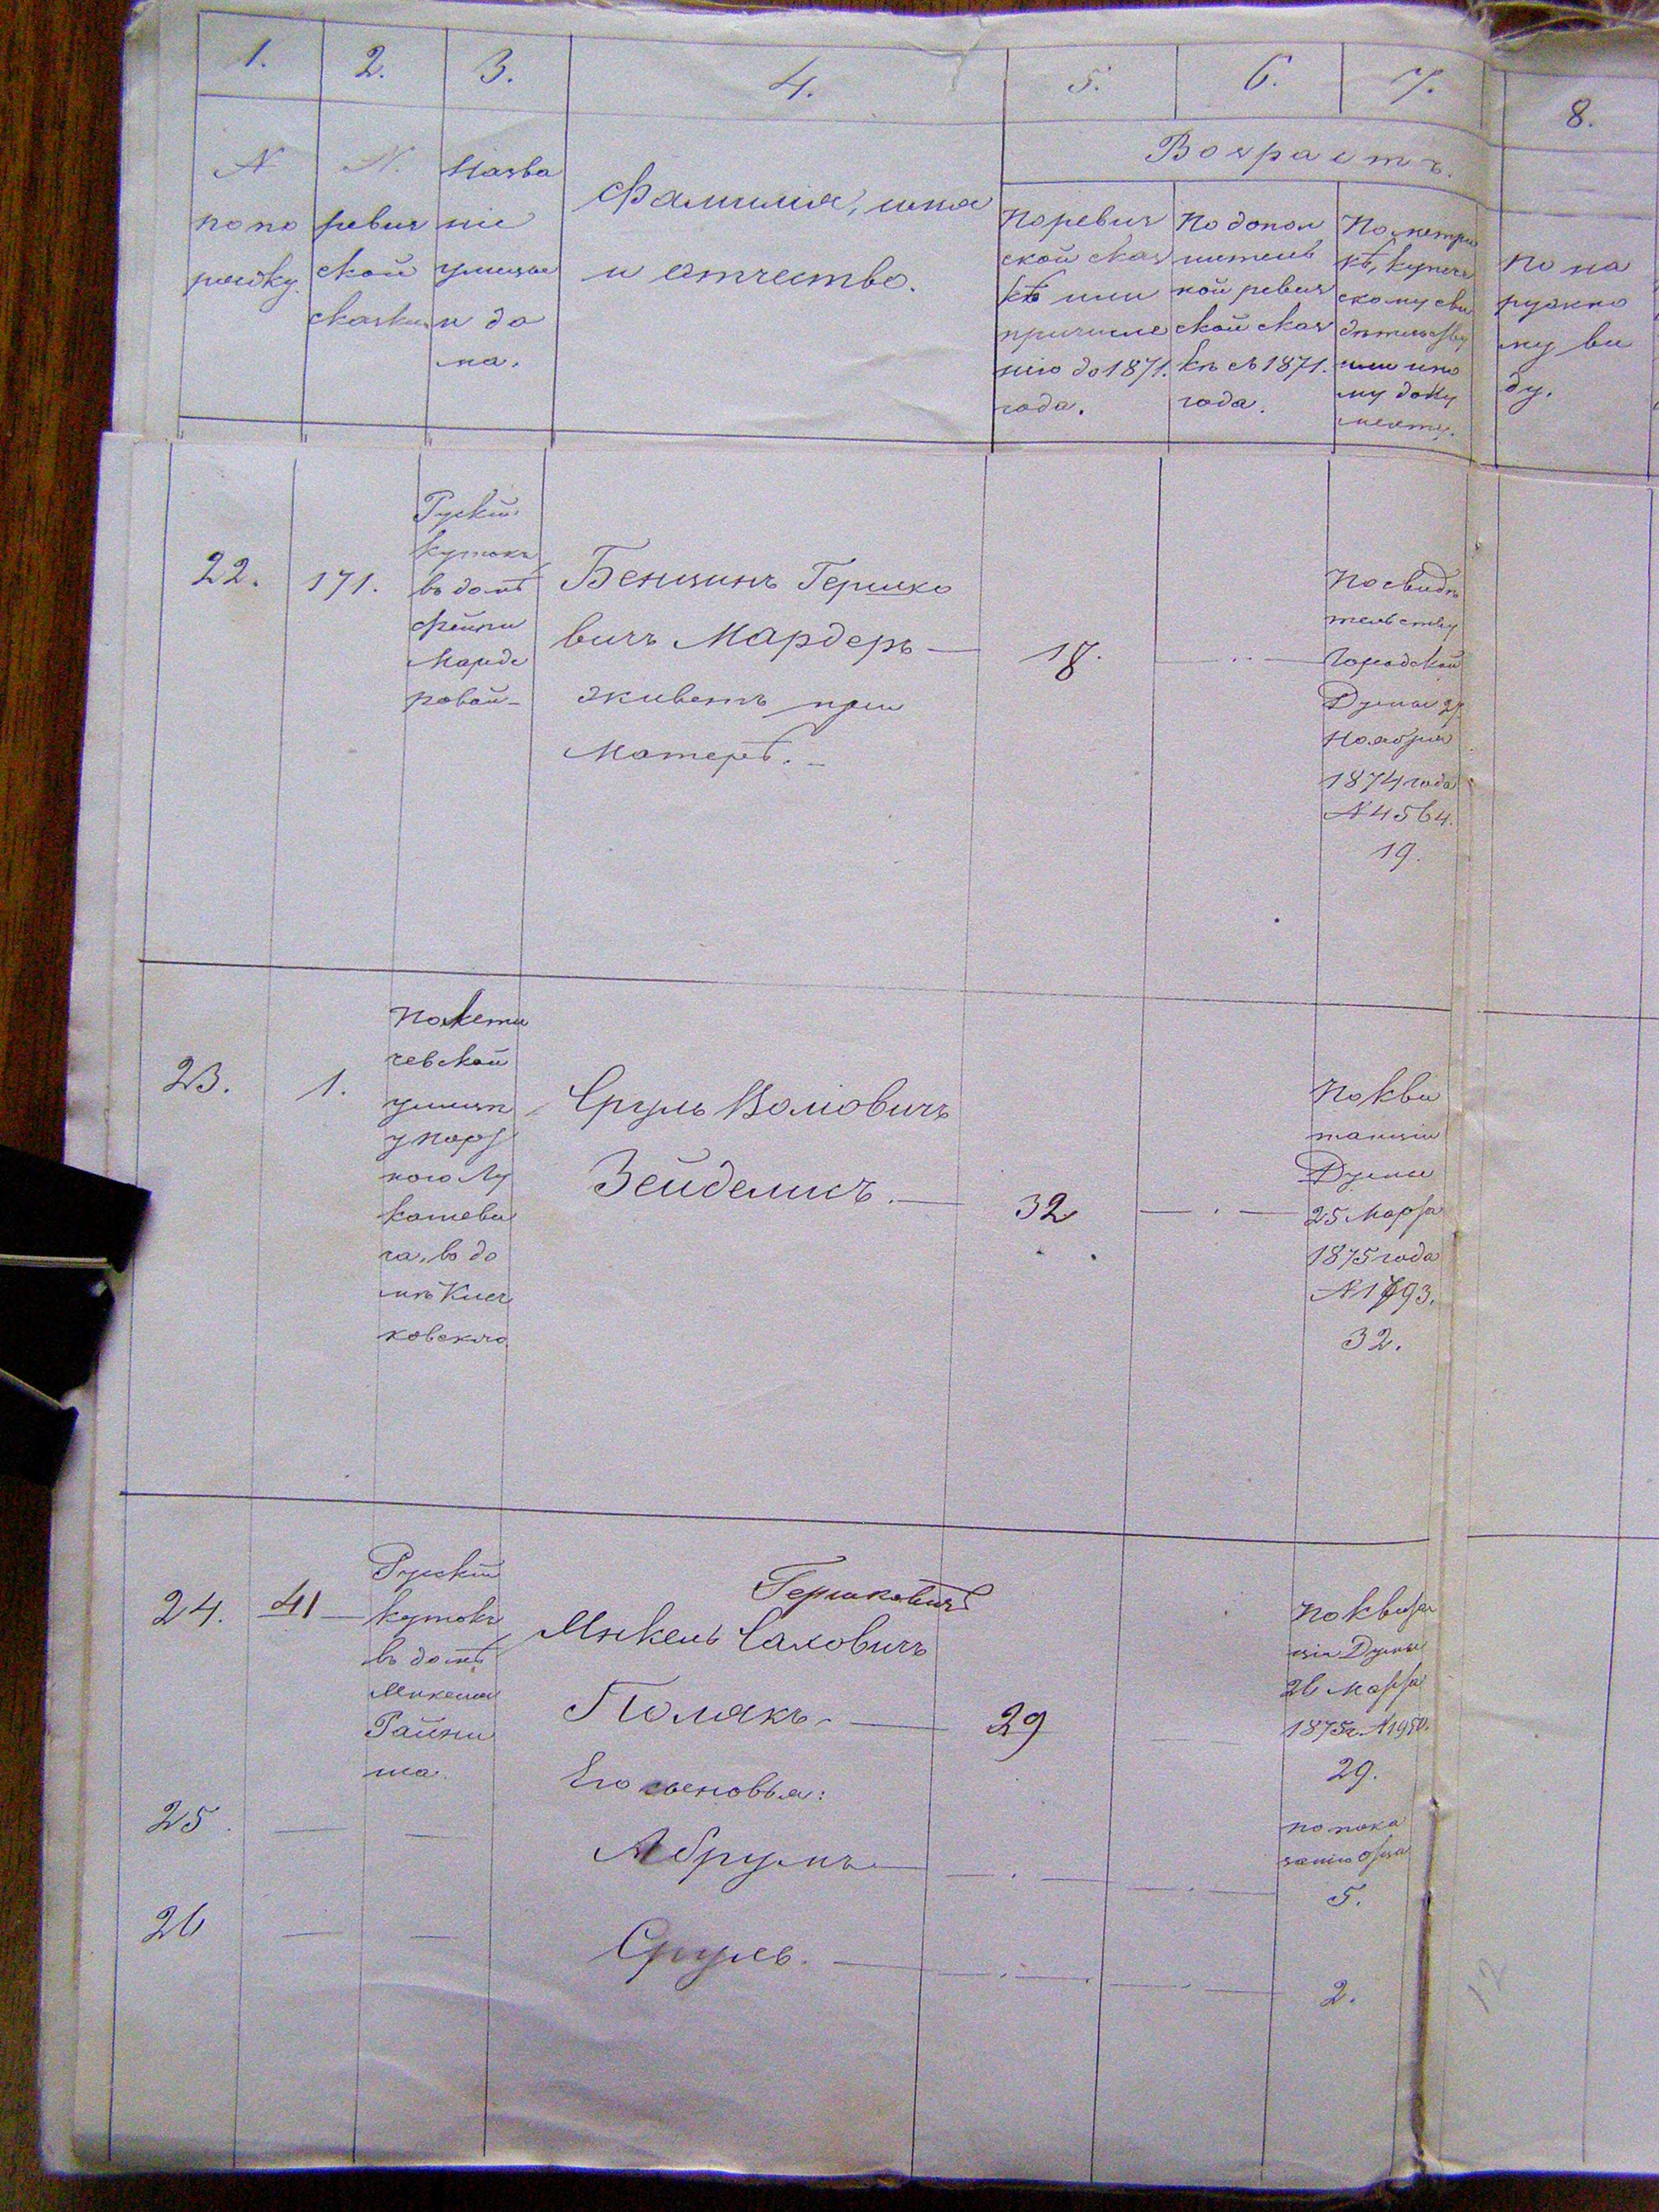 1.
2.
3.
4.
5.
6.
7.
8.
N
по по
рядку.
N.
ревиз
ской
сказки
Назва
ніе
улицы
и до
ма.
Фамилія, имя
и отчество.
Возрастъ.
По ревиз
ской сказ
кѣ или
причисле
нію до 1871.
года.
По допол
нитель
ной ревиз
ской сказ
кѣ съ 1871.
года.
По метри
кѣ, купече
скому сви
дѣтельству
или ино
му доку
менту.
По на
ружно
му ви
ду.
22.
171.
Рускій
кутокъ
въ домѣ
Фейги
Марде
ровой
Бенционъ Гершко
вичъ Мардеръ
живетъ при
матерѣ.
18.
По свидѣ
тельству
Городской
Думы 27
Ноября
1874 года
N 4564.
19.
23.
1.
По Лети
чевской
улицѣ
ного Лу
кашеви
ча, въ до
мѣ
ковского
Сруль Волковичъ
Зейделисъ.
32
По кви
танціи
Думы
25 Марта
1875 года
N 1793.
32.
24.
41
Рускій
кутокъ
въ домѣ
Микеля
Гершковичъ
Микель Саловичъ
Полякъ.
29
По квитан
ціи Думы
26 Марта
1875г. N 1950.
29.
Его сыновья:
25.
Абрумъ
по пока
занію отца
5.
26
Сруль.
2.
12